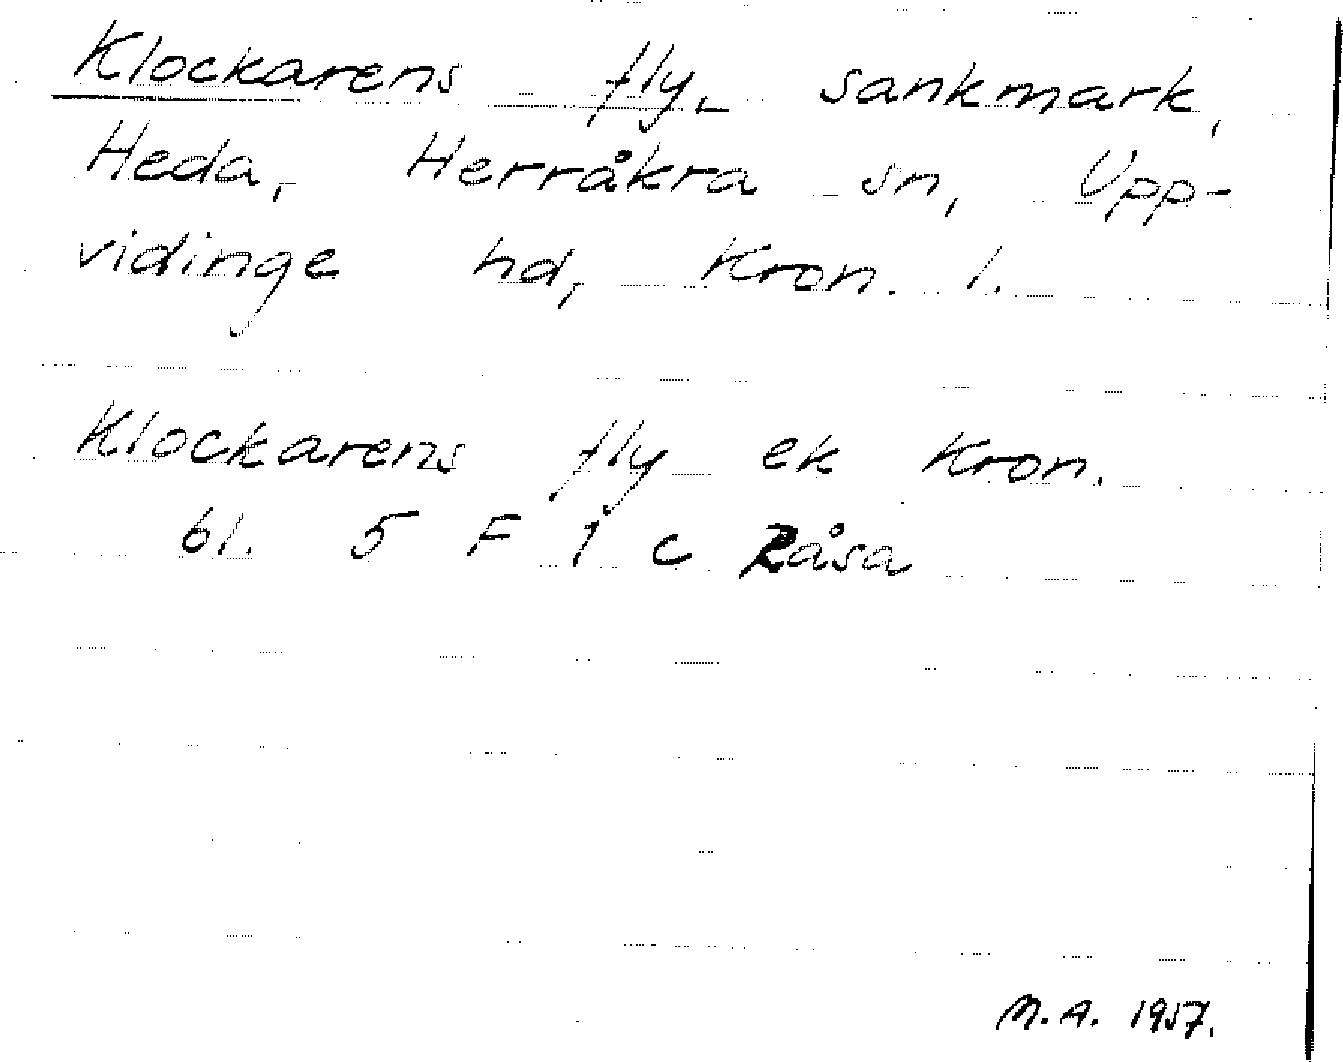 Klockarens fly, sankmark,
Heda, Herråkra sn, Upp-
vidinge hd, Kron. l.
Klockarens fly ek Kron.
bl. 5 F 1 c Råsa
M.A. 1957.